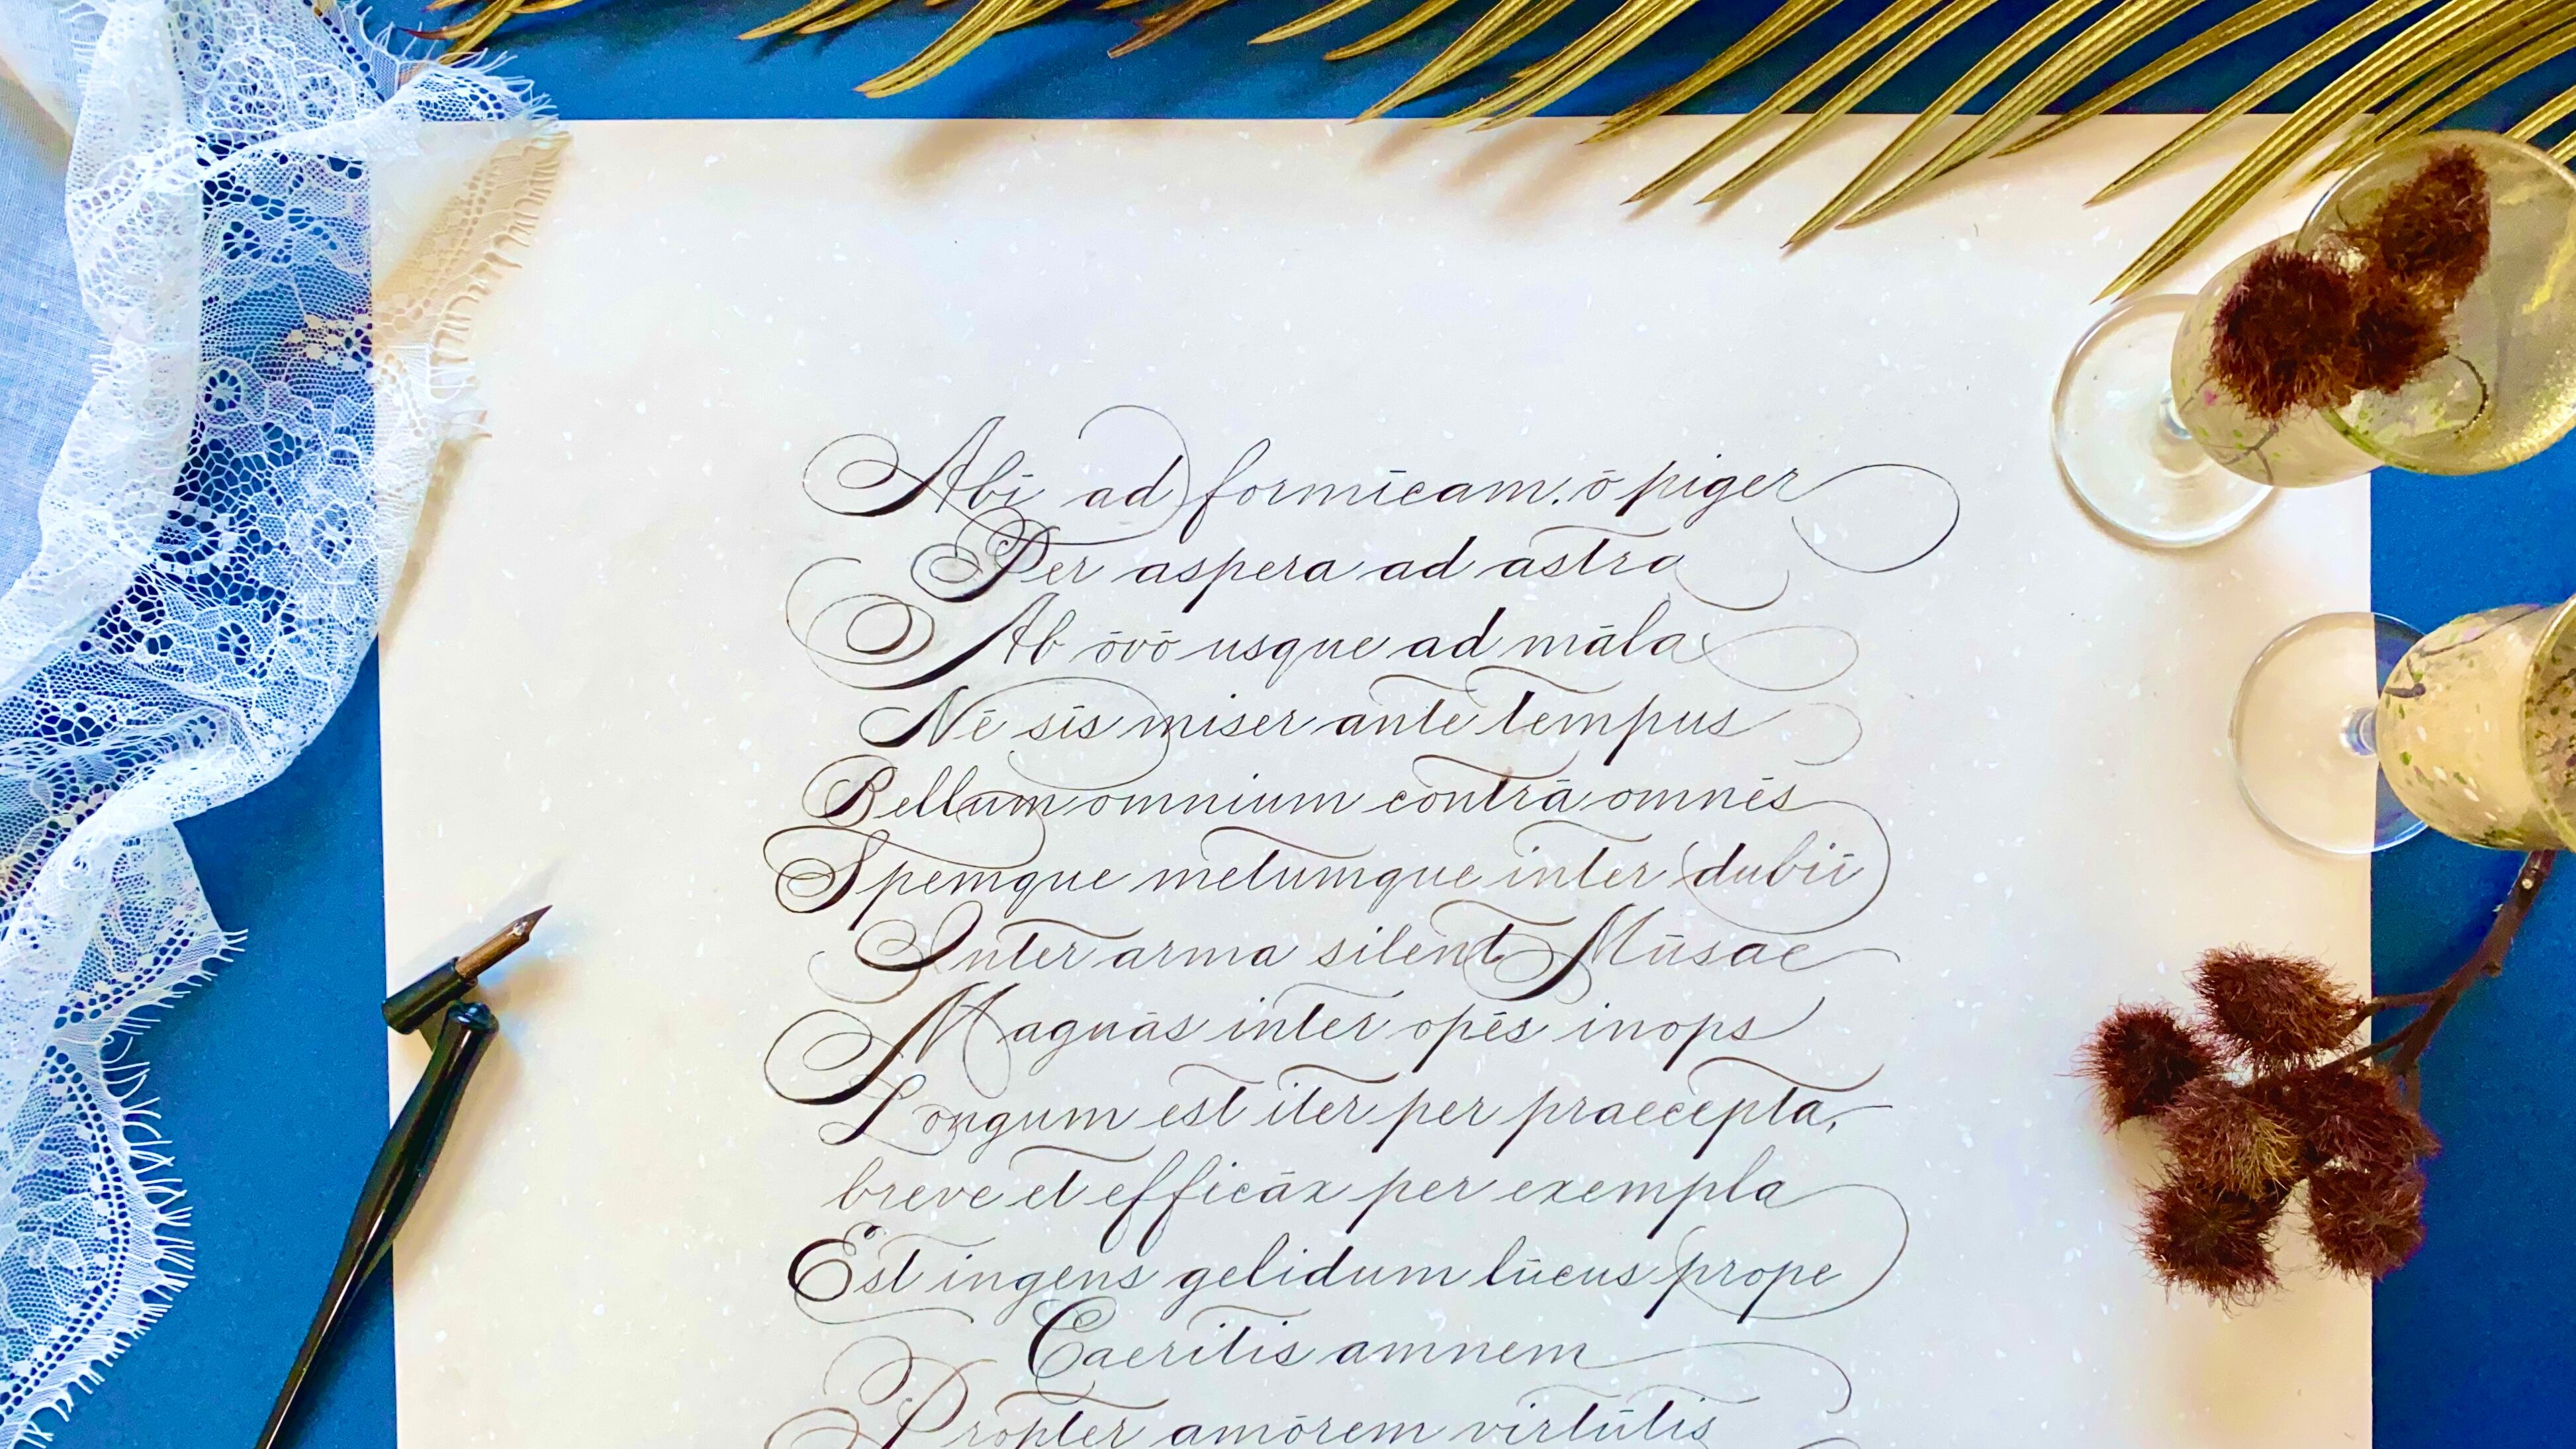 Abī ad formīcam, ō piger
Per aspera ad astra
Ab ōvō usque ad māla
Nē sīs miser ante tempus
Bellum omnium contrā omnēs
Spemque metumque inter dubiī
Inter arma silent Mūsae
Magnās inter opēs inops
Longum est iter per praecepta,
breve et efficāx per exempla
Est ingens gelidum lūcus prope
Caeritis amnem
Propter amōrem virtūtis